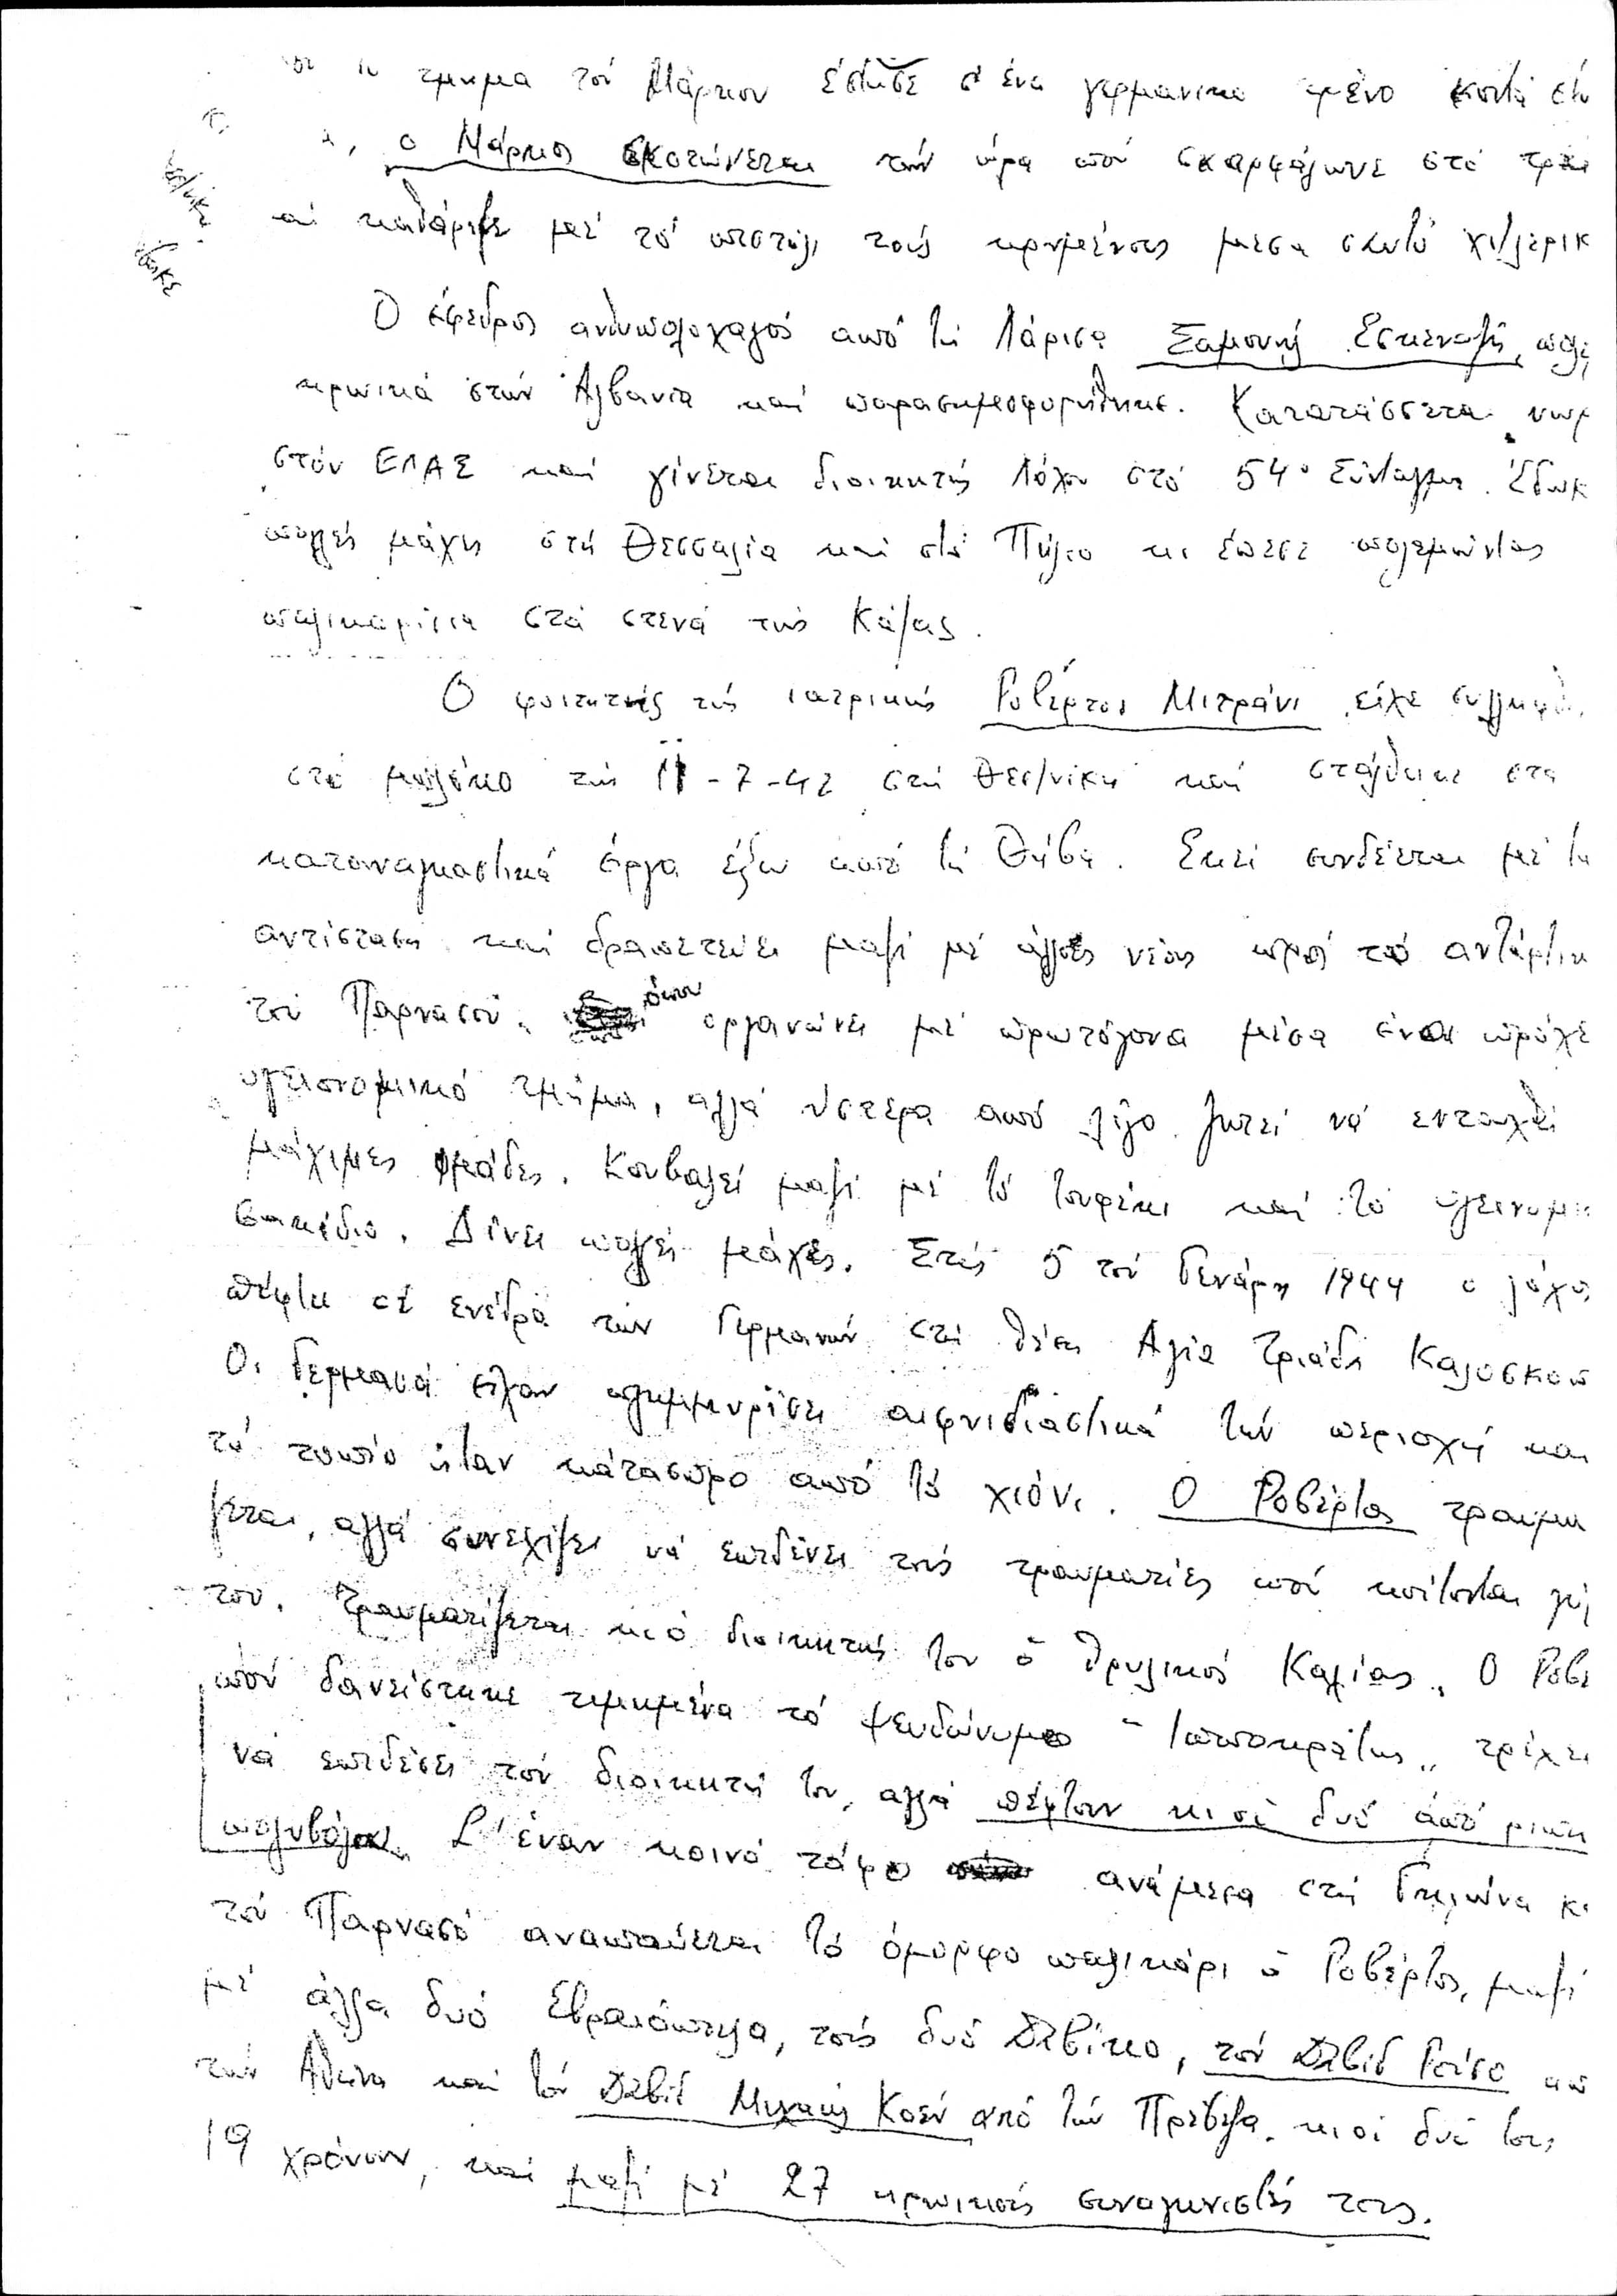 τμημα τού Μάρκου έστησε σ' ένα γερμανικο τρένο κοντά στυ
ο Μάρκος σκοτώνεται τήν ώρα πού σκαρφάλωνε στό τραί
αί καθάριζε μέ τό πιστόλι τούς κρυμένους μέσα σ' αυτό χιτλερικ
Ο έφεδρος ανθυπολοχαγός από τή Λάρισα Σαμουήλ Εσκεναζή, πολε
ηρωικά στήν Αλβανία καί παρασημοφορήθηκε. Κατατάσσεται νωρ
στόν ΕΛΑΣ καί γίνεται διοικητής Λόχου στό 54ο Σύνταγμα. Έδωκ
πολλές μάχες στή Θεσσαλία καί στό Πήλιο κι έπεσε πολεμώντας
παλικαρίσια στά στενά τής Κάζας.
Ο φοιτητής τής ιατρικής Ροβέρτος Μιτράνι είχε συλληφθ
στό μπλόκο τής 11-7-42 στή Θεσ/νίκη καί στάλθηκε στα
καταναγκαστικά έργα έξω από τή Θήβα. Εκεί συνδέεται μέ τη
αντίσταση καί δραπετεύει μαζί μέ άλλους νέους πρός τό αντάρτικ
τού Παρνασού, όπου οργανώνει μέ πρωτόγονα μέσα ένα πρόχε
υγειονομικό τμήμα, αλλά ύστερα από λίγο ζητεί νά ενταχθεί
μάχιμες ομάδες. Κουβαλεί μαζί μέ τό τουφέκι καί τό υγειονομι
σακίδιο. Δίνει πολλές μάχες. Στίς 5 τού Γενάρη 1944 ο λόχος
πέφτει σέ ενέδρα τών Γερμανών στή θέση Αγία Τριάδα Καλοσκοπ
Οι Γερμανοί είχαν πλημμυρίσει αιφνιδιαστικά τήν περιοχή και
τό τοπίο ήταν κάτασπρο από τό χιόνι. Ο Ροβέρτος τραυμα
ζεται, αλλά συνεχίζει νά επιδένει τούς τραυματίες πού κοίτονται γύ
του. Τραυματίζεται κι ο διοικητής του ο θρυλικός Καλίας. Ο Ροβέ
πού δανείστηκε τιμημένα τό ψευδώνυμο "Ιπποκράτης" τρέχει
νά επιδέσει τόν διοικητή του, αλλά πέφτουν κι οι δυό από ριπή
πολυβόλου. Σ' έναν κοινό τάφο ανάμεσα στή Γκιώνα κα
τόν Παρνασό αναπαύεται τό όμορφο παλικάρι ο Ροβέρτος, μαζί
μέ άλλα δυό Εβραιόπουλα, τούς δυό Δαβίκο, τόν Δαβίδ Ρούσο απ
τήν Αθήνα καί τόν Δαβίδ Μιχαήλ Κοέν από τήν Πρέβεζα, κι οί δυό τους
19 χρόνων, καί μαζί μέ 27 ηρωικούς συναγωνιστές τους.